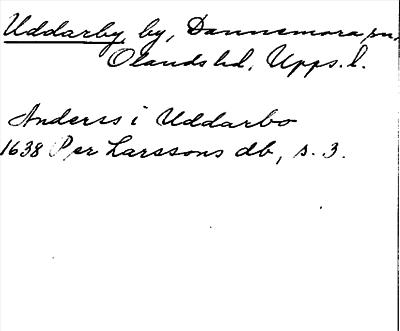 Uddarby, by, Dannemora sn,
Olands hd, Upps. l.
Anders i Uddarbo
1638 Per Larssons db, s. 3.